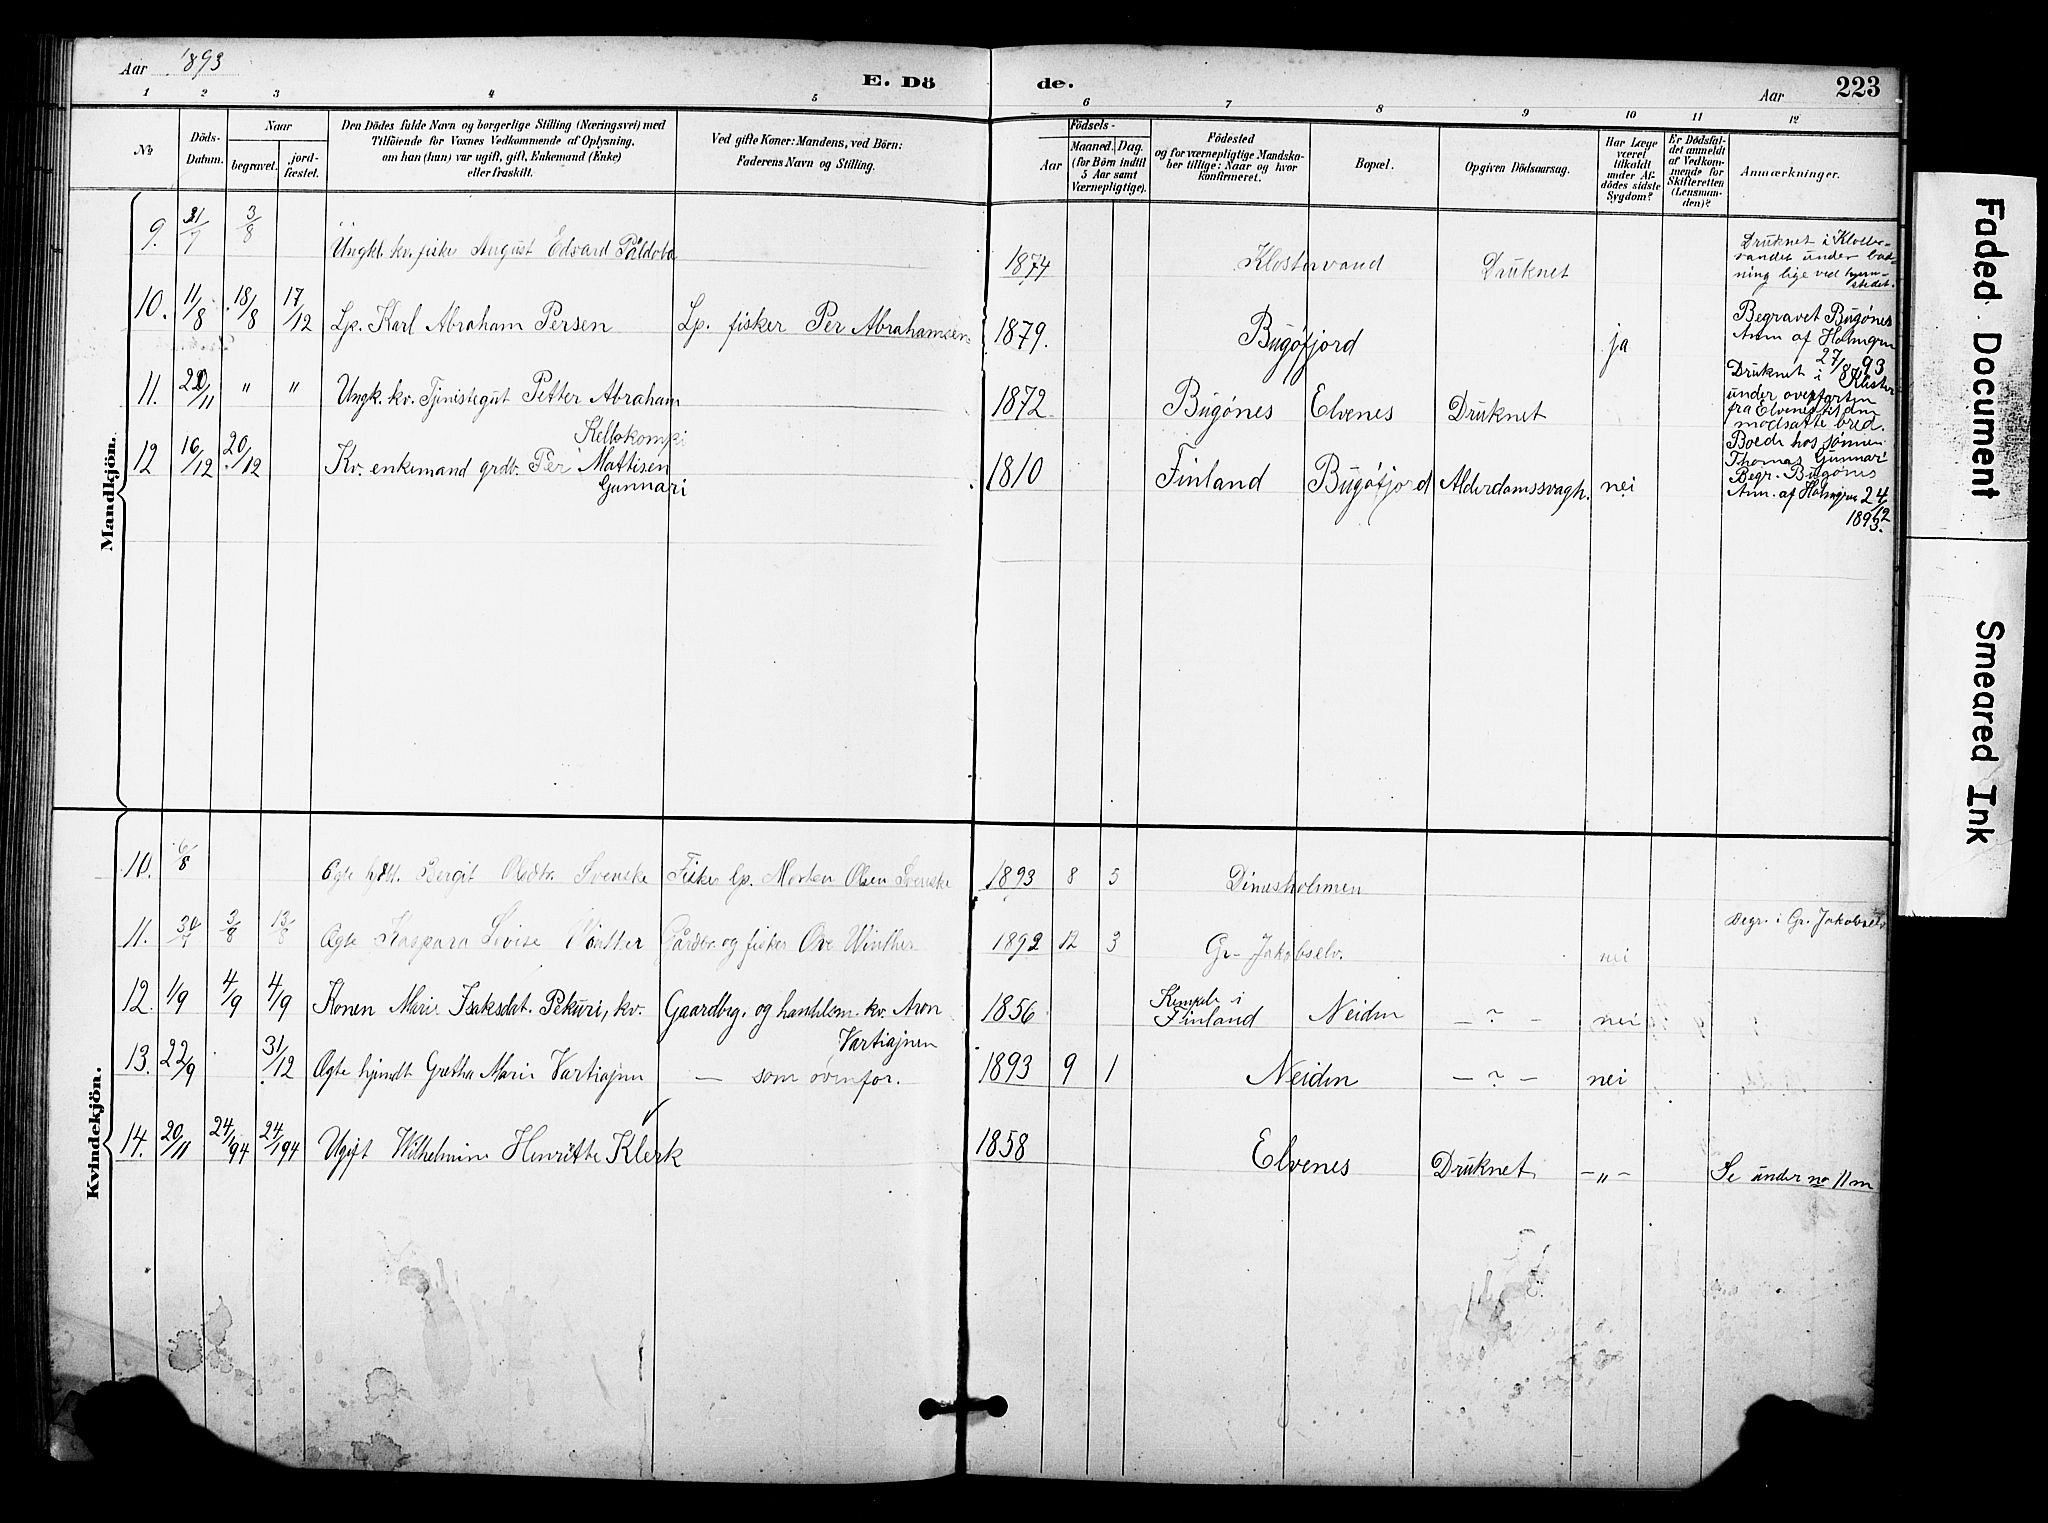 Aar 1893
E. Dö
de.
Aar
223
1 2 3 4 5 6 7 8 9 10 11 12
No
Döds-
Datum.
Naar
begravet.
jord-
fæstet.
Den Dödes fulde Navn og borgerlige Stilling (Næringsvei) med
Tilföiende for Voxnes Vedkommende af Oplysning,
om han (hun) var ugift, gift, Enkemand (Enke)
eller fraskilt.
Ved gifte Koner: Mandens, ved Börn:
Faderens Navn og Stilling.
Födsels-
Aar
Maaned.
Dag.
(for Börn indtil
5 Aar samt
Værnepligtige).
Födested
og for værnepligtige Mandska-
ber tillige: Naar og hvor
konfirmeret.
Bopæl.
Opgiven Dödsaarsag.
Har Læge
været
tilkaldt
under Af-
dödes sidste
Sygdom?
Er Dödsfal-
det anmeldt
af Vedkom-
mende for
Skifteretten
(Lensman-
den)?
Anmærkninger.
Mandkjön.
9. 21/7 3/8 Ungkl. kv. fisker August Edvard Påldoba 1874 Klostervand Druknet
Druknet i Kloster-
vandet under bad-
ning lige ved hjem-
stedet.
10. 11/8 18/8 17/12 Lp. Karl Abraham Persen Lp. fisker Per Abrahamsen 1879. Bugöfjord ja
Begravet Bugönes
Anm af Holmgren
27/8 93
11. 20/11 " " Ungk. kv. Tjenistegut Petter Abraham
Kellokompi
1872 Bugönes Elvenes Druknet
Druknet i Kloster
under overfarten
fra Elvenes til den
modsatte bred.
12 16/12 20/12 Kv. enkemand grdb. Per Mattisen
Gunnari
1810 Finland Bugöfjord Alderdomssvagh. nei
Boede hos sønnen
Thomas Gunnari
Begr. Bugönes
Anm. af Holmgren 24/12
1893.
Kvindekjön.
10. 6/8 Ægte hjdt. Bergit Olsdtr. Svenske Fisker lp. Morten Olsen Svenske 1893 8 5 Dinesholmen
11. 3/8 13/8 Ægte Kaspara Lovise Winther Gårdbr. og fisker Ove Winther 1892 12 3 Gr- Jakobselv. nei Begr. i Gr. Jakobselv
12. 1/9 4/9 4/9 Konen Marie Isaksdat. Pekuri, kv. Gaardbrg. og handelsm. kv. Aron
Vartiajnen
1856 Kempele i
Finland Neiden — ? — nei
13. 22/9 31/12 Ægte hjemdt Gretha Marie Vartiajnen — som ovenfor. 1893 9 1 Neiden — ? — nei
14. 20/11 24/1 94 24/1 94 Ugift Wilhelmine Henriette Klerk 1858 Elvenes Druknet — „ — Se under no 11 m
Faded Document
Smeared Ink